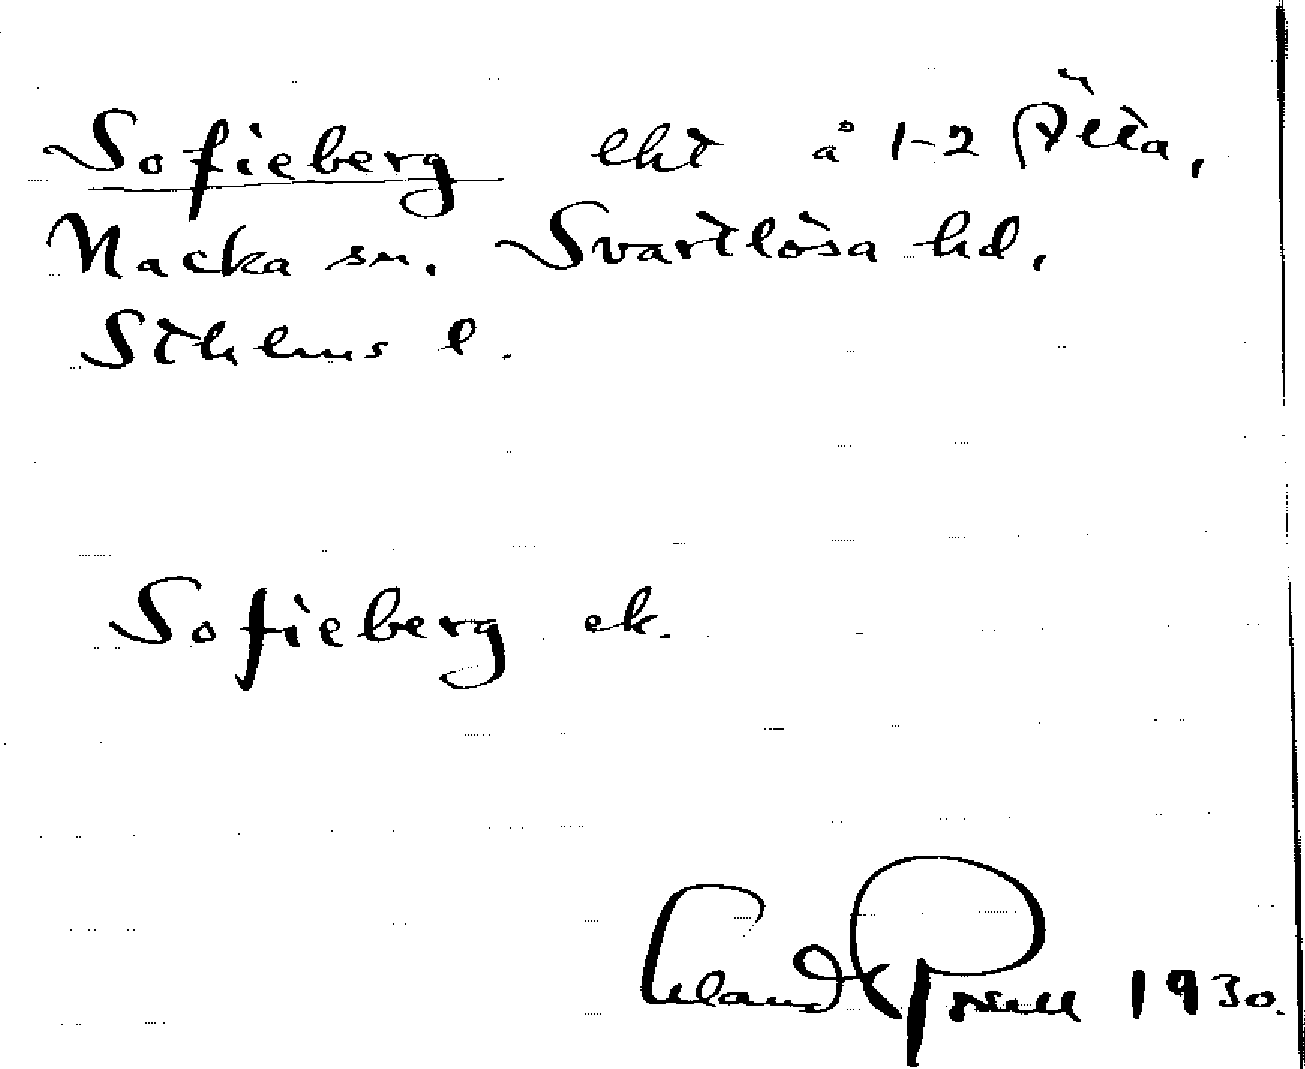 Sofieberg lht å 1-2 Älta,
Nacka sn. Svartlösa hd,
Sthlms l.
Sofieberg ek.
Erland Rosell 1930.